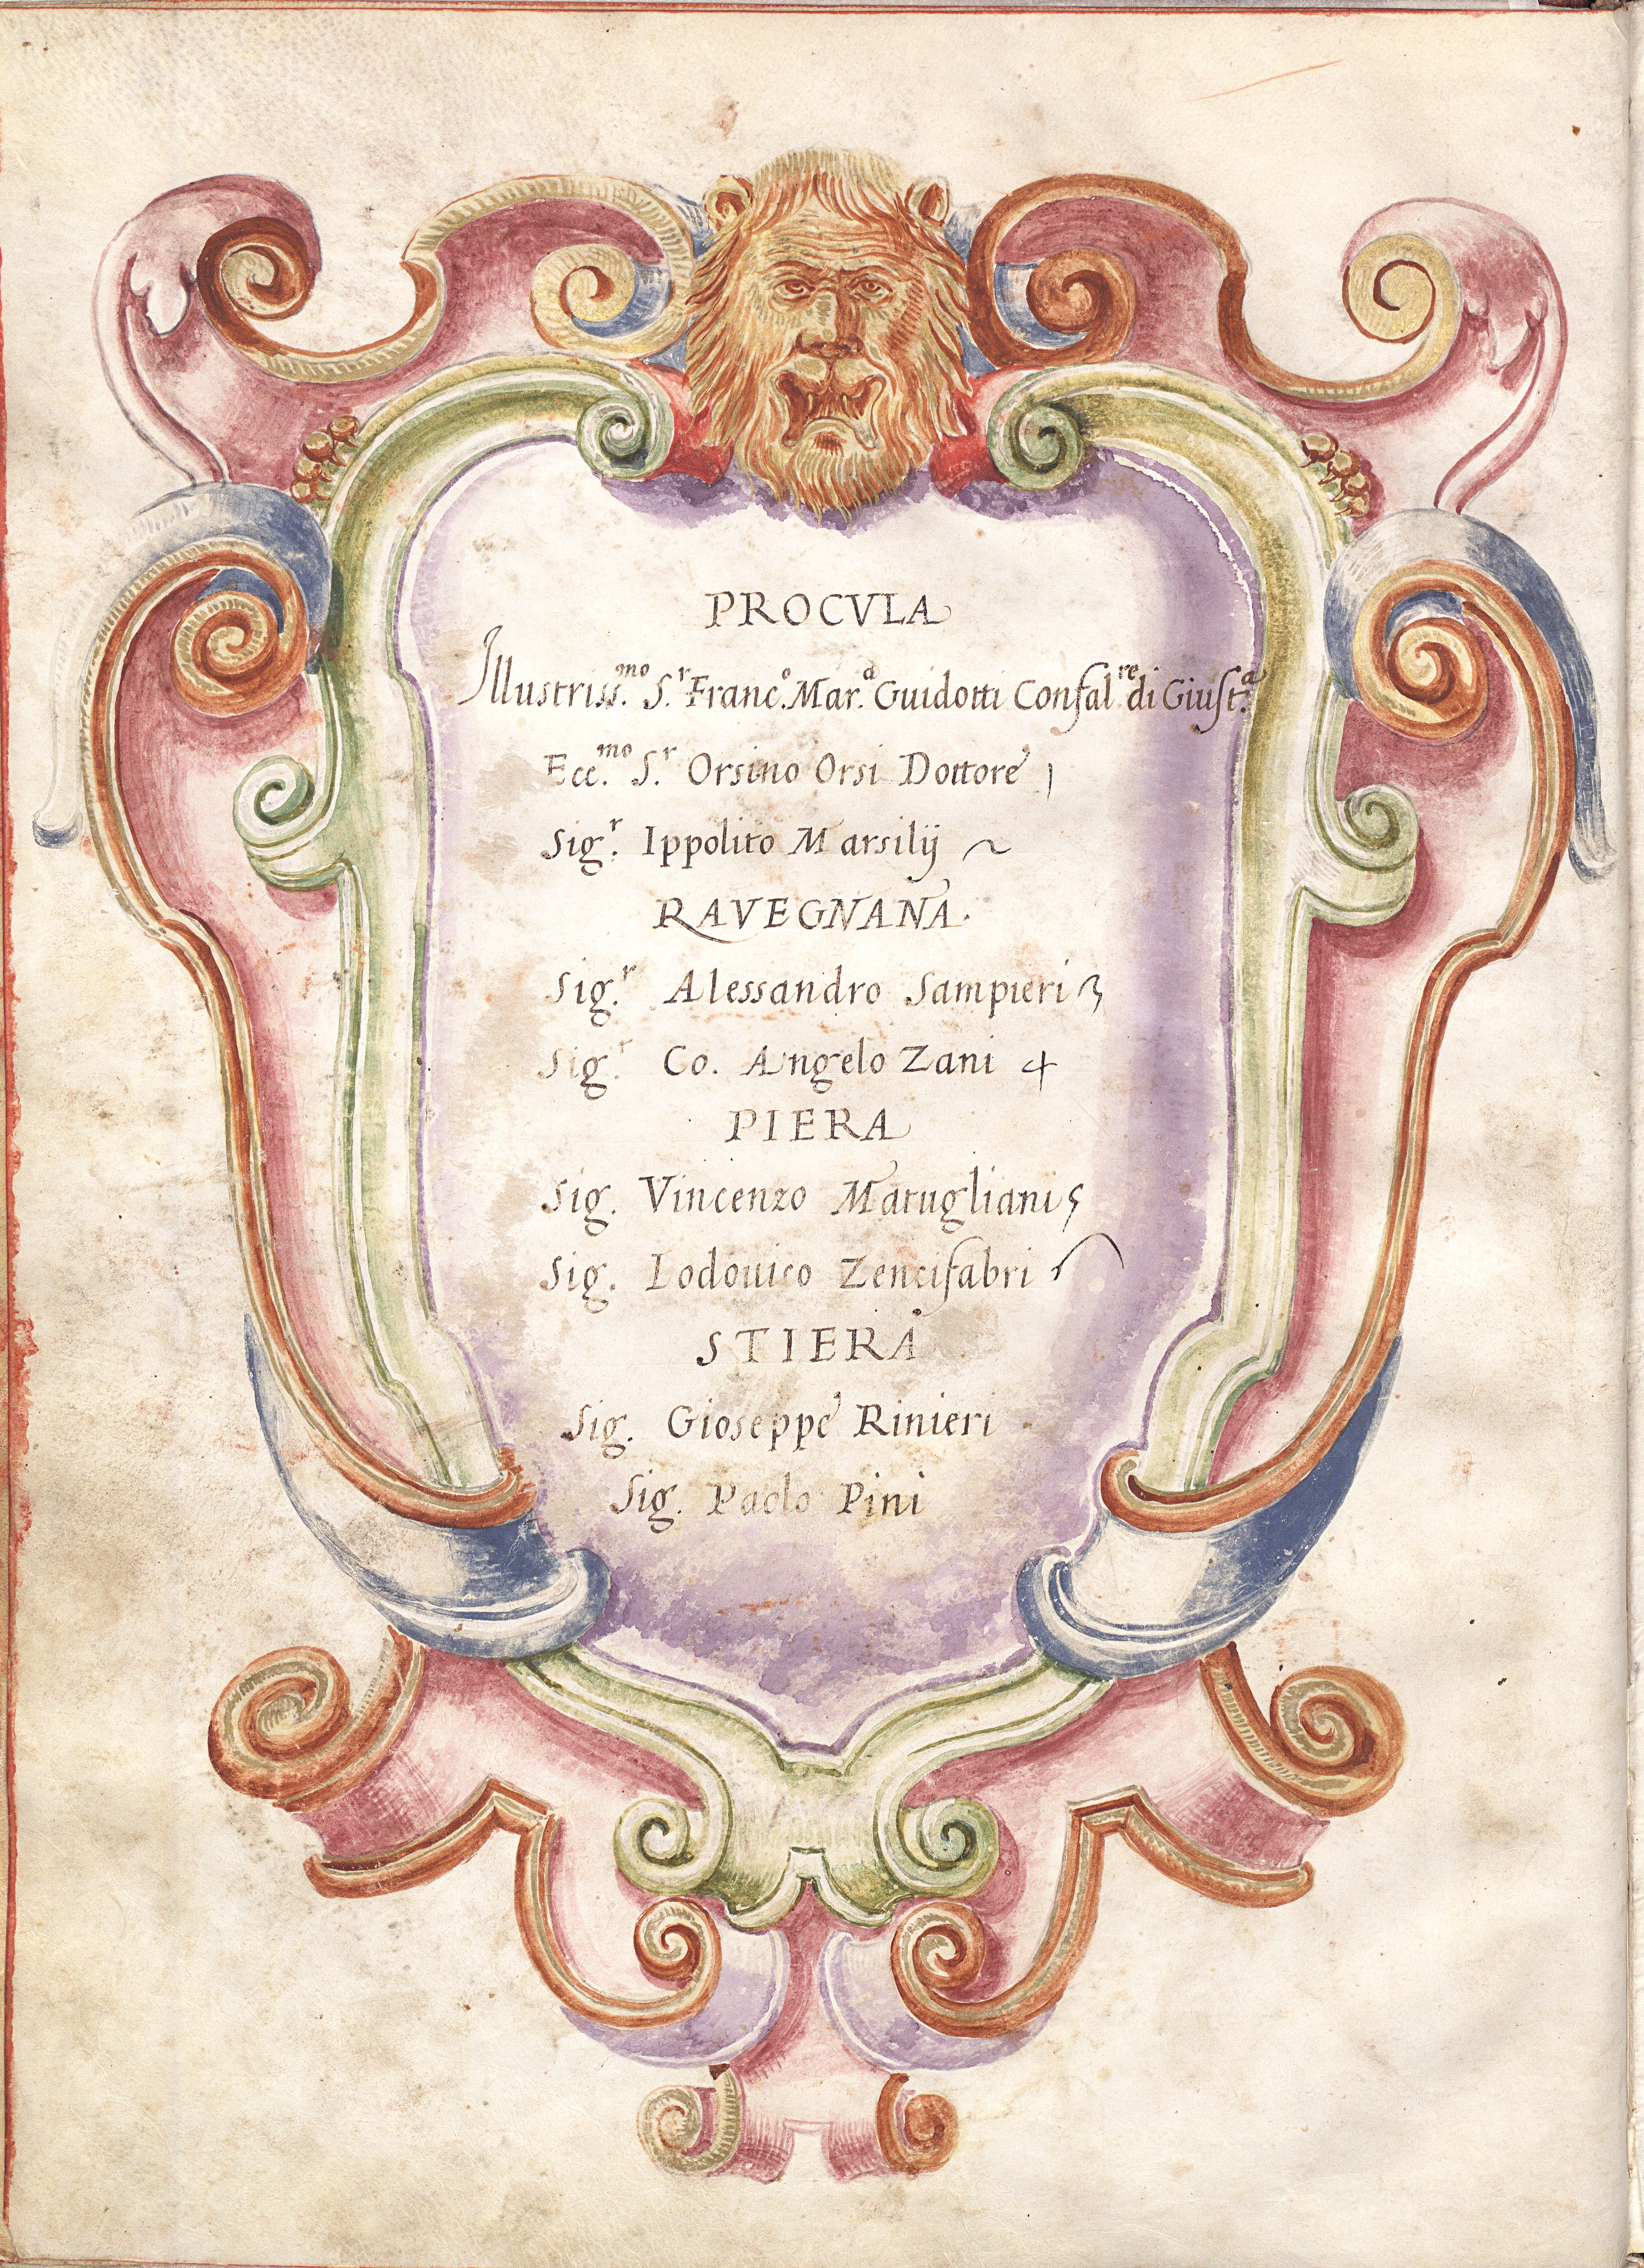 PROCVLA
Illustriss.mo S.r Franc.o Mar.a Guidotti Confal.re di Giust.a
Ecc.mo S.r Orsino Orsi Dottore
Sig.r Ippolito Marsilij
RAVEGNANA.
Sig.r Alessandro Sampieri
Sig.r Co. Angelo Zani
PIERA
Sig. Vincenzo Matugliani
Sig. Lodouico Zencifabri
STIERA
Sig. Gioseppe Rinieri
Sig. Paolo Pini